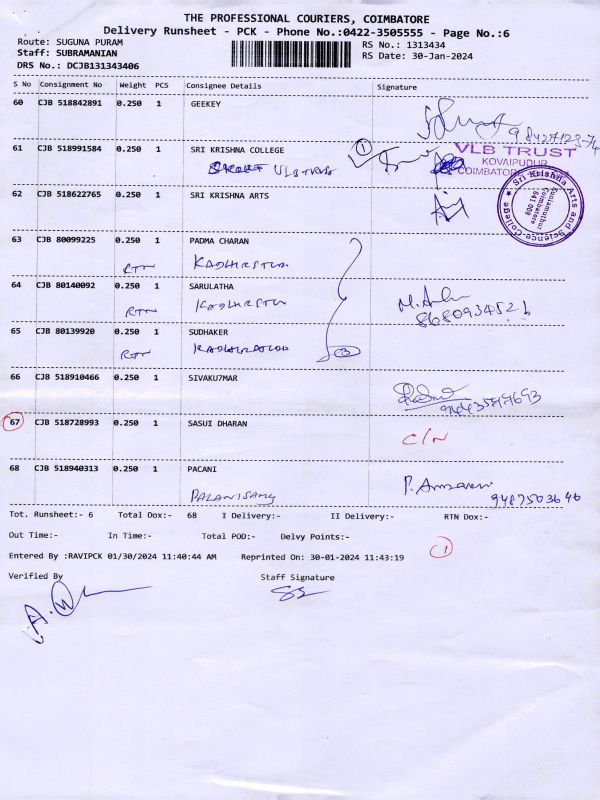 THE PROFESSIONAL COURIERS, COIMBATORE
Delivery Runsheet - PCK - Phone No.:0422-3505555 - Page No.:6
Route: SUGUNA PURAM
Staff: SUBRAMANIAN
DRS No.: DCJB131343406
RS No.: 1313434
RS Date: 30-Jan-2024
S No Consignment No Weight PCS Consignee Details Signature
60 CJB 518842891 0.250 1 GEEKEY
61 CJB 518991584 0.250 1 SRI KRISHNA COLLEGE
VLB TRUST
1
VLB TRUST
KOVAIPUDUR
COIMBATORE
62 CJB 518622765 0.250 1 SRI KRISHNA ARTS
Sri Krishna Arts and Science College
Kuniamuthur
Coimbatore
641 008
63 CJB 80099225 0.250 1 PADMA CHARAN
RTN
64 CJB 80140092 0.250 1 SARULATHA
RTN
8680934521
65 CJB 80139920 0.250 1 SUDHAKER
RTN
3
66 CJB 518910466 0.250 1 SIVAKU7MAR
67 CJB 518728993 0.250 1 SASUI DHARAN
C/N
68 CJB 518940313 0.250 1 PACANI
PALANISAMY
9487503646
Tot. Runsheet:- 6 Total Dox:- 68 I Delivery:- II Delivery:- RTN Dox:-
Out Time:- In Time:- Total POD:- Delvy Points:-
1
Entered By :RAVIPCK 01/30/2024 11:40:44 AM Reprinted On: 30-01-2024 11:43:19
Verified By Staff Signature